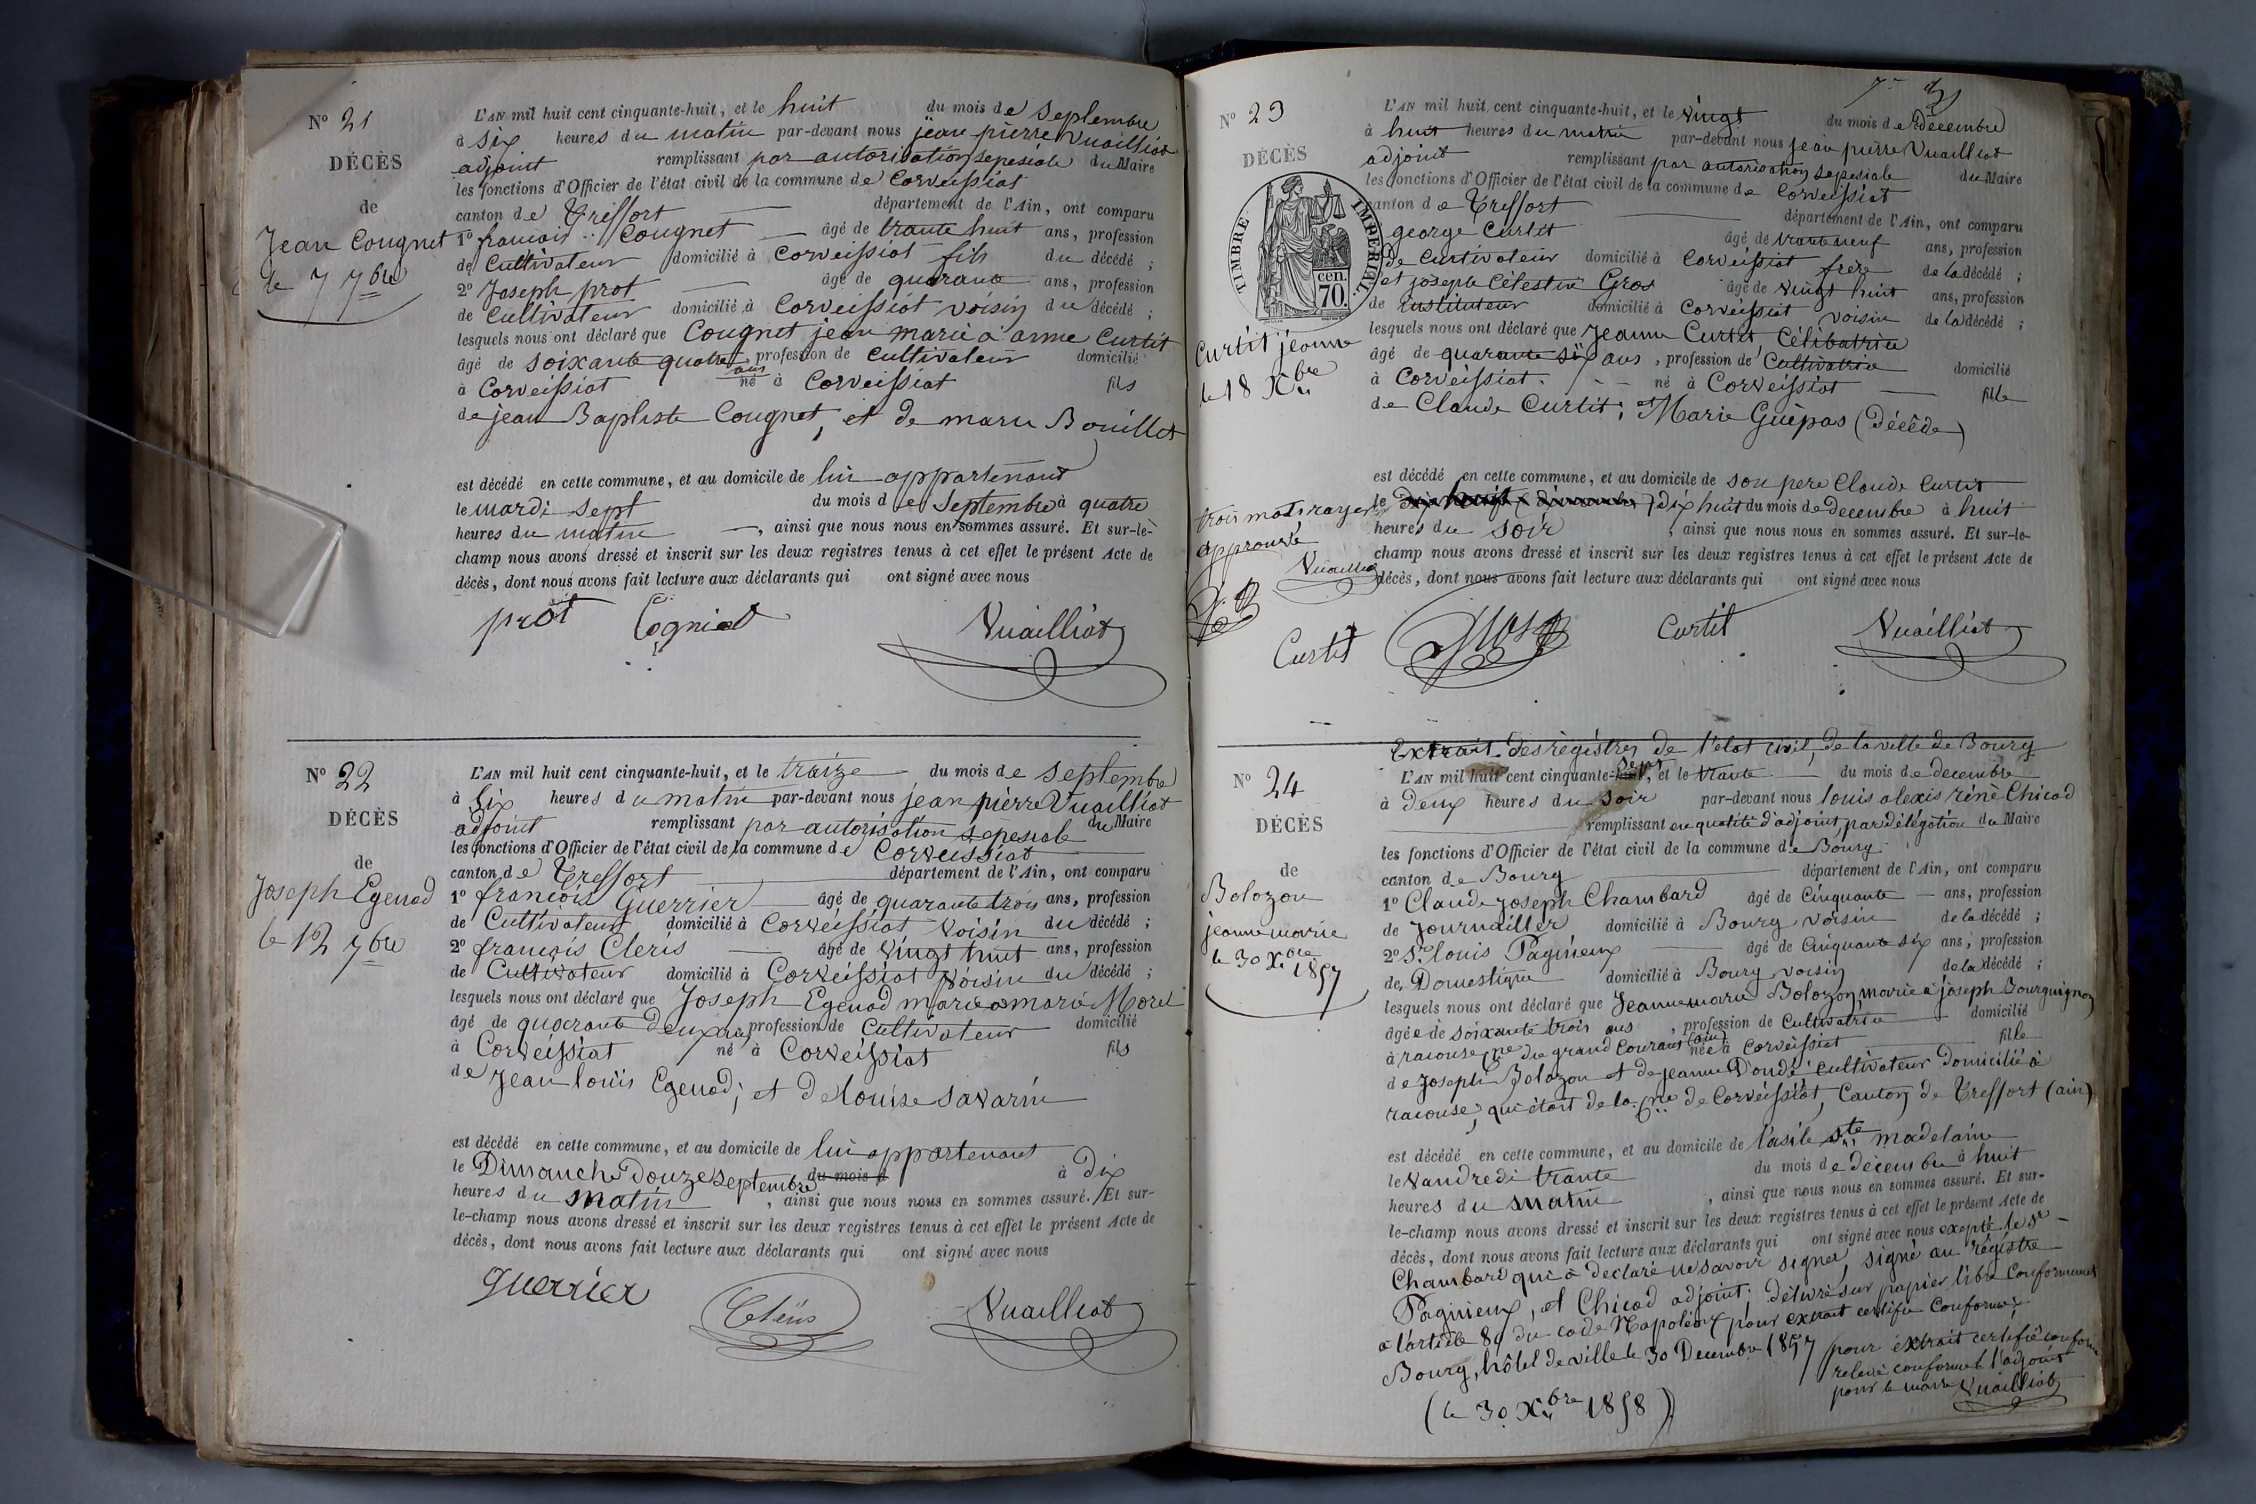 N° 21
DÉCÈS
de
Jean Cougnet
le 7 7bre
L'AN mil huit cent cinquante-huit, et le huit du mois de Septembre
à six heures du matin par-devant nous jean pierre Vuailliat
adjoint remplissant par autorisation sepesiale du Maire
les fonctions d'Officier de l'état civil de la commune de Corveissiat
canton de Treffort département de l'Ain, ont comparu
1° francois Cougnet âgé de trante huit ans, profession
de Cultivateur domicilié à Corveissiat fils du décédé ;
2° Joseph prot âgé de quarante ans, profession
de Cultivateur domicilié à Corveissiat voisin du décédé ;
lesquels nous ont déclaré que Cougnet jean marie a anne Curtit
âgé de soixante quatre ans profession de Cultivateur domicilié
à Corveissiat né à Corveissiat fils
de jean Baptiste Cougnet, et de marie Bouillet
est décédé en cette commune, et au domicile de lui appartenant
le mardi sept du mois de Septembre à quatre
heures du matin, ainsi que nous nous en sommes assuré. Et sur-le-
champ nous avons dressé et inscrit sur les deux registres tenus à cet effet le présent Acte de
décès, dont nous avons fait lecture aux déclarants qui ont signé avec nous
prot Cogniet Vuailliat
N° 22
DÉCÈS
de
Joseph Egenod
le 12 7bre
L'AN mil huit cent cinquante-huit, et le traize du mois de septembre
à six heures du matin par-devant nous jean pierre Vuailliat
adjoint remplissant par autorisation sepesiale du Maire
les fonctions d'Officier de l'état civil de la commune de Corveissiat
canton de Treffort département de l'Ain, ont comparu
1° francois Guerrier âgé de quarante trois ans, profession
de Cultivateur domicilié à Corveissiat voisin du décédé ;
2° francois Cleris âgé de vingt huit ans, profession
de Cultivateur domicilié à Corveissiat Voisin du décédé ;
lesquels nous ont déclaré que Joseph Egenod marie a marie Morel
âgé de quarante deux ans profession de Cultivateur domicilié
à Corveissiat né à Corveissiat fils
de Jean louis Egenod; et de louise savarin
est décédé en cette commune, et au domicile de lui appartenant
le Dimanche Douze septembre du mois d à Dix
heures du matin, ainsi que nous nous en sommes assuré. Et sur-
le-champ nous avons dressé et inscrit sur les deux registres tenus à cet effet le présent Acte de
décès, dont nous avons fait lecture aux déclarants qui ont signé avec nous
Guerrier Cleris Vuailliat
N° 23
DÉCÈS
TIMBRE IMPÉRIAL
cen.
70.
Curtit jeanne
le 18 Xbre
trois mots rayer
approuvé
Vuailliat
L'AN mil huit cent cinquante-huit, et le vingt du mois de Decembre
à huit heures du matin par-devant nous jean pierre Vuailliat
adjoint remplissant par autorisation sepesiale du Maire
les fonctions d'Officier de l'état civil de la commune de Corveissiat
canton de Treffort département de l'Ain, ont comparu
george Curtit âgé de trante neuf ans, profession
de Curtivateur domicilié à Corveissiat frère de la décédé ;
et joseph Célestin Gros âgé de vingt huit ans, profession
de instituteur domicilié à Corveissiat voisin de la décédé ;
lesquels nous ont déclaré que Jeanne Curtit, Célibatrice
âgé de quarante six ans, profession de Cultivatrice domicilié
à Corveissiat. né à Corveissiat fille
de Claude Curtit; et Marie Guépas (Décédé)
est décédé en cette commune, et au domicile de son pere Claude Curtit
le dix huit du mois de Decembre à huit
heures du soir, ainsi que nous nous en sommes assuré. Et sur-le-
champ nous avons dressé et inscrit sur les deux registres tenus à cet effet le présent Acte de
décès, dont nous avons fait lecture aux déclarants qui ont signé avec nous
Curtit Gros Curtit Vuailliat
Extrait des règistres de l'etat civil, de la ville de Bourg
N° 24
DÉCÈS
de
Bolozon
jeanne marie
le 30 Xbre
1857
L'AN mil huit cent cinquante-sept, et le trante du mois de decembre
à deux heures du soir par-devant nous louis alexis réné Chicod
remplissant en qualité d'adjoint, par délégation du Maire
les fonctions d'Officier de l'état civil de la commune de Bourg
canton de Bourg département de l'Ain, ont comparu
1° Claude joseph Chambard âgé de Cinquante ans, profession
de journailler domicilié à Bourg voisin de la décédé ;
2° Sr. louis Paginieux âgé de Cinquante six ans, profession
de Domestique domicilié à Bourg voisin de la décédé ;
lesquels nous ont déclaré que Jeanne marie Bolozon, mariée à joseph Bourguignon
âgée de soixante trois ans, profession de Cultivatrice domicilié
à racouse, cne du grand Courant (ain) née à Corveissiat fille
de Joseph Bolozon et de jeanne Dondé cultivateur Domicilié à
racouse, qui étoit de la cne de Corveissiat, Canton de Treffort (ain)
est décédé en cette commune, et au domicile de l'asile Ste madelaine
le Vandredi trante du mois de décembre à huit
heures du matin, ainsi que nous nous en sommes assuré. Et sur-
le-champ nous avons dressé et inscrit sur les deux registres tenus à cet effet le présent Acte de
décès, dont nous avons fait lecture aux déclarants qui ont signé avec nous exepté le Sr
Chambard qui à declaré ne savoir signer, signè au règistre
Paginieux, et Chicod adjoint: délivré sur papier libre Conformement
a l'article 80 du code Napoléon, pour extrait certifié Conforme;
Bourg, hôtel de ville le 30 Decembre 1857
pour extrait certifié conforme
relevé conforme l'adjoint
pour le maire Vuailliat
(le 30 Xbre 1858)